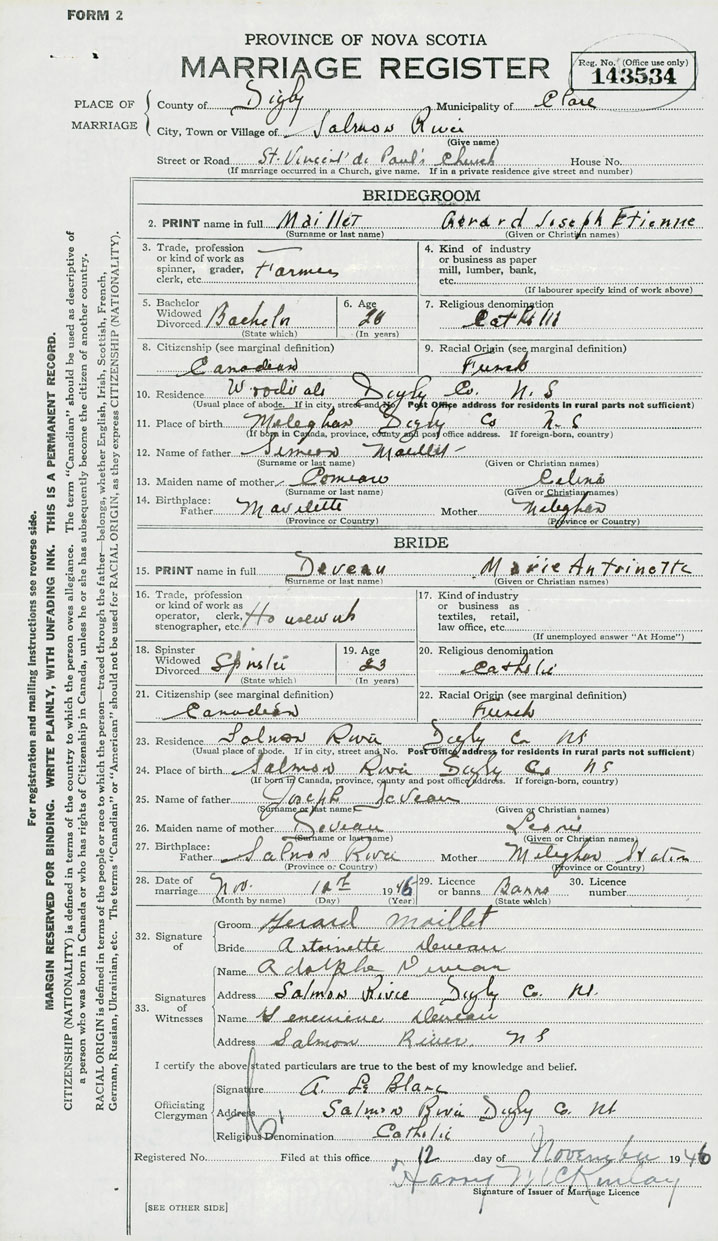 FORM 2
PROVINCE OF NOVA SCOTIA
MARRIAGE REGISTER
Reg. No. (Office use only)
143534
PLACE OF MARRIAGE
County of Digby Municipality of Clare
City, Town or Village of Salmon River
(Give name)
Street or Road St. Vincent de Paul's Church House No.
(If marriage occurred in a Church, give name. If in a private residence give street and number)
BRIDEGROOM
2. PRINT name in full Maillet Gerard Joseph Etienne
(Surname or last name) (Given or Christian names)
3. Trade, profession or kind of work as spinner, grader, clerk, etc. Farmer
4. Kind of industry or business as paper mill, lumber, bank, etc.
(If labourer specify kind of work above)
5. Bachelor Widowed Divorced Bachelor
(State which)
6. Age
(In years)
7. Religious denomination Catholic
8. Citizenship (see marginal definition)
Canadian
9. Racial Origin (see marginal definition)
French
10. Residence Woodvale Digby Co. N. S
(Usual place of abode. If in city, street and No. Post Office address for residents in rural parts not sufficient)
11. Place of birth Meteghan Digby Co N. S
(If born in Canada, province, county and post office address. If foreign-born, country)
12. Name of father Simeon Maillet
(Surname or last name) (Given or Christian names)
13. Maiden name of mother Comeau Celina
(Surname or last name) (Given or Christian names)
14. Birthplace: Father Mavilette Mother Meteghan
(Province or Country) (Province or Country)
BRIDE
15. PRINT name in full Deveau Marie Antoinette
(Surname or last name) (Given or Christian names)
16. Trade, profession or kind of work as operator, clerk, stenographer, etc. Housework
17. Kind of industry or business as textiles, retail, law office, etc.
(If unemployed answer "At Home")
18. Spinster Widowed Divorced Spinster
(State which)
19. Age 23
(In years)
20. Religious denomination
Catholic
21. Citizenship (see marginal definition)
Canadian
22. Racial Origin (see marginal definition)
French
23. Residence Salmon River Digby Co NS
(Usual place of abode. If in city, street and No. Post Office address for residents in rural parts not sufficient)
24. Place of birth Salmon River Digby Co NS
(If born in Canada, province, county and post office address. If foreign-born, country)
25. Name of father Joseph Deveau
(Surname or last name) (Given or Christian names)
26. Maiden name of mother Deveau
(Surname or last name) (Given or Christian names)
27. Birthplace: Father Salmon River Mother Meteghan Station
(Province or Country) (Province or Country)
28. Date of marriage Nov. 1946
(Month by name) (Day) (Year)
29. Licence or banns Banns
(State which)
30. Licence number
32. Signature of
Groom Gerard Maillet
Bride Antoinette Deveau
33. Signatures of Witnesses
Name Adolphe Deveau
Address Salmon River Digby Co. NS.
Name Genevieve Deveau
Address Salmon River, N S
I certify the above stated particulars are true to the best of my knowledge and belief.
Officiating Clergyman
Signature A. Le Blanc
Address Salmon River Digby Co. NS
Religious Denomination Catholic
Registered No. Filed at this office 12 day of November 1946
Harry McKinlay
Signature of Issuer of Marriage Licence
[SEE OTHER SIDE]
For registration and mailing instructions see reverse side.
MARGIN RESERVED FOR BINDING. WRITE PLAINLY, WITH UNFADING INK. THIS IS A PERMANENT RECORD.
CITIZENSHIP (NATIONALITY) is defined in terms of the country to which the person owes allegiance. The term "Canadian" should be used as descriptive of
a person who was born in Canada or who has rights of Citizenship in Canada, unless he or she has subsequently become the citizen of another country.
RACIAL ORIGIN is defined in terms of the people or race to which the person—traced through the father—belongs, whether English, Irish, Scottish, French,
German, Russian, Ukrainian, etc. The terms "Canadian" or "American" should not be used for RACIAL ORIGIN, as they express CITIZENSHIP (NATIONALITY).